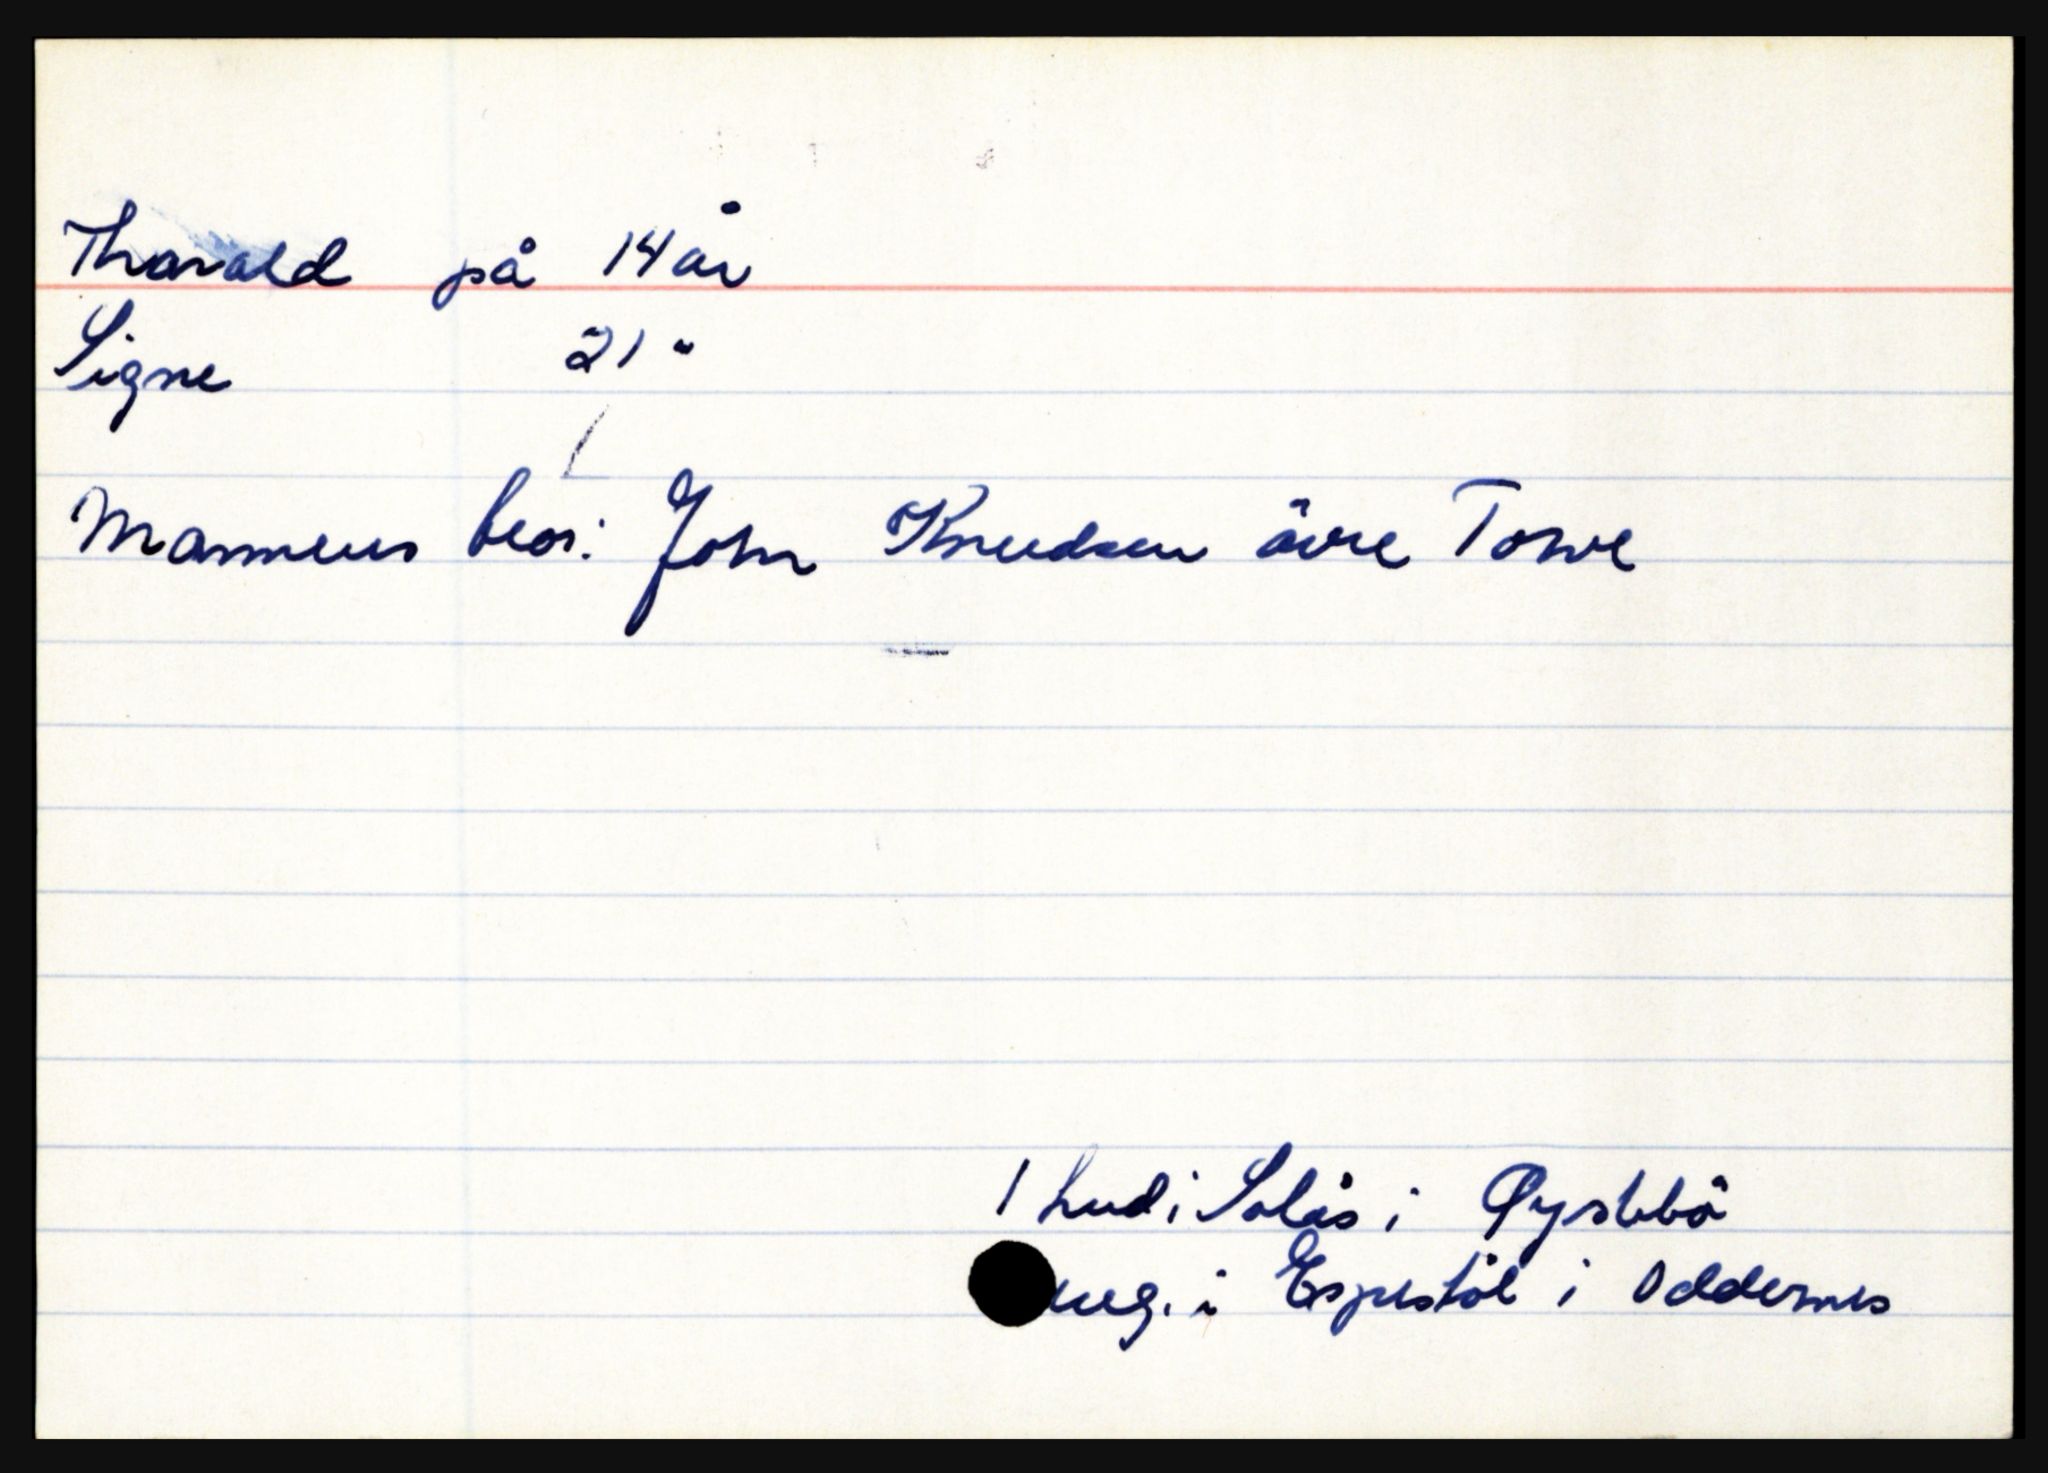 Tharald på 14 år
Signe 21 "
Mannens bror: John Knudsen övre Towe
1 hud i Solås i Øyslebö
eng. i Espestöl i Oddernes